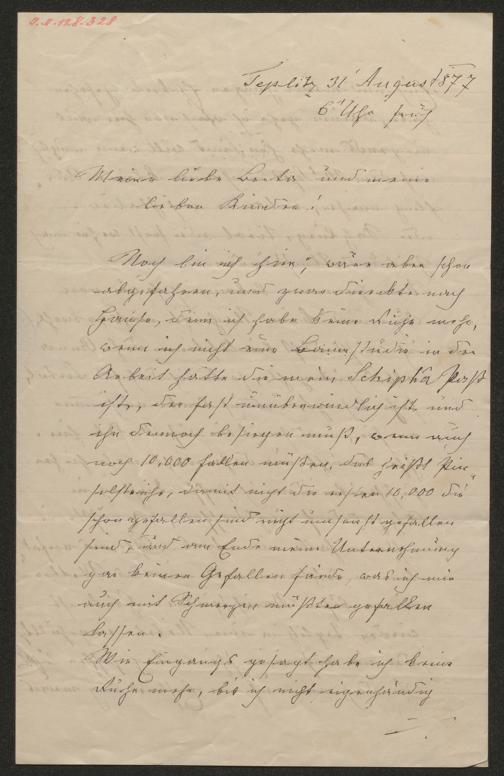 O.N.128.328
Teplitz 31' August 1877
6 Uhr früh
Meine liebe Berta und meine
lieben Kinder!
Noch bin ich hier; wäre aber schon
abgefahren, und zwar direkte nach
Hause, denn ich habe keine Ruhe mehr,
wenn ich nicht eine Baumstudie in der
Arbeit hätte die mein Schipka Paß
ist, der fast unüberwindlich ist und
ihn dennoch besiegen muß, wenn auch
noch 10,000 fallen müßten, das heißt Pin
selstriche, damit nicht die ersten 10,000 die
schon gefallen sind nicht umsonst gefallen
sind, und am Ende meine Unternehmung
gar keinen Gefallen fände, was ich mir
auch mit Schmerzen müßte gefallen
lassen.
Wie Eingangs gesagt habe ich keine
Ruhe mehr, bis ich nicht eigenhändig